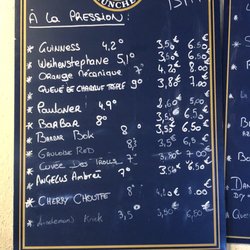 MÜNCHE
À LA PRESSION :
* GUINNESS 4,2° 3,50 6,50
* Weihenstephane 5,1° 3,50 6,50
* ORANGE MÉCANIQUE 7° 4,20 8.00
* QUEUE DE CHARRUE TRIPLE 9° 3,80 7.00
* PAULANER 4,9° 3,50 6,50
* BARBAR 8° 3,50 6,50
* BARBAR Bok 8° 3,50 6,50
* GAULOISE RED 3,80 7.00
* CUVÉE DES TROLLS 7° 3,50 6,50
* ANGELUS Ambrée 7° 3,50 6,50
* CHERRY CHOUFFE 8° 4,20 8.00
* Kriek 3,5° 3,50 6,50